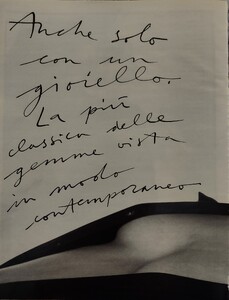 Anche solo
con un
gioiello.
La più
classica delle
gemme vista
in modo
contemporaneo